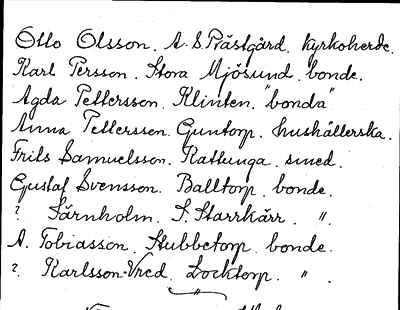 Otto Olsson. A. S. Prästgård. kyrkoherde.
Karl Persson. Stora Mjösund. bonde.
Agda Pettersson. Klinten. "bonda"
Anna Pettersson. Guntorp. hushållerska.
Frits Samuelsson. Ratlunga. smed.
Gustaf Svensson. Balltorp. bonde.
? Särnholm. S. Starrkärr. ".
A. Tobiasson. Stubbetorp. bonde.
? Karlsson-Vred. Locktorp. ".